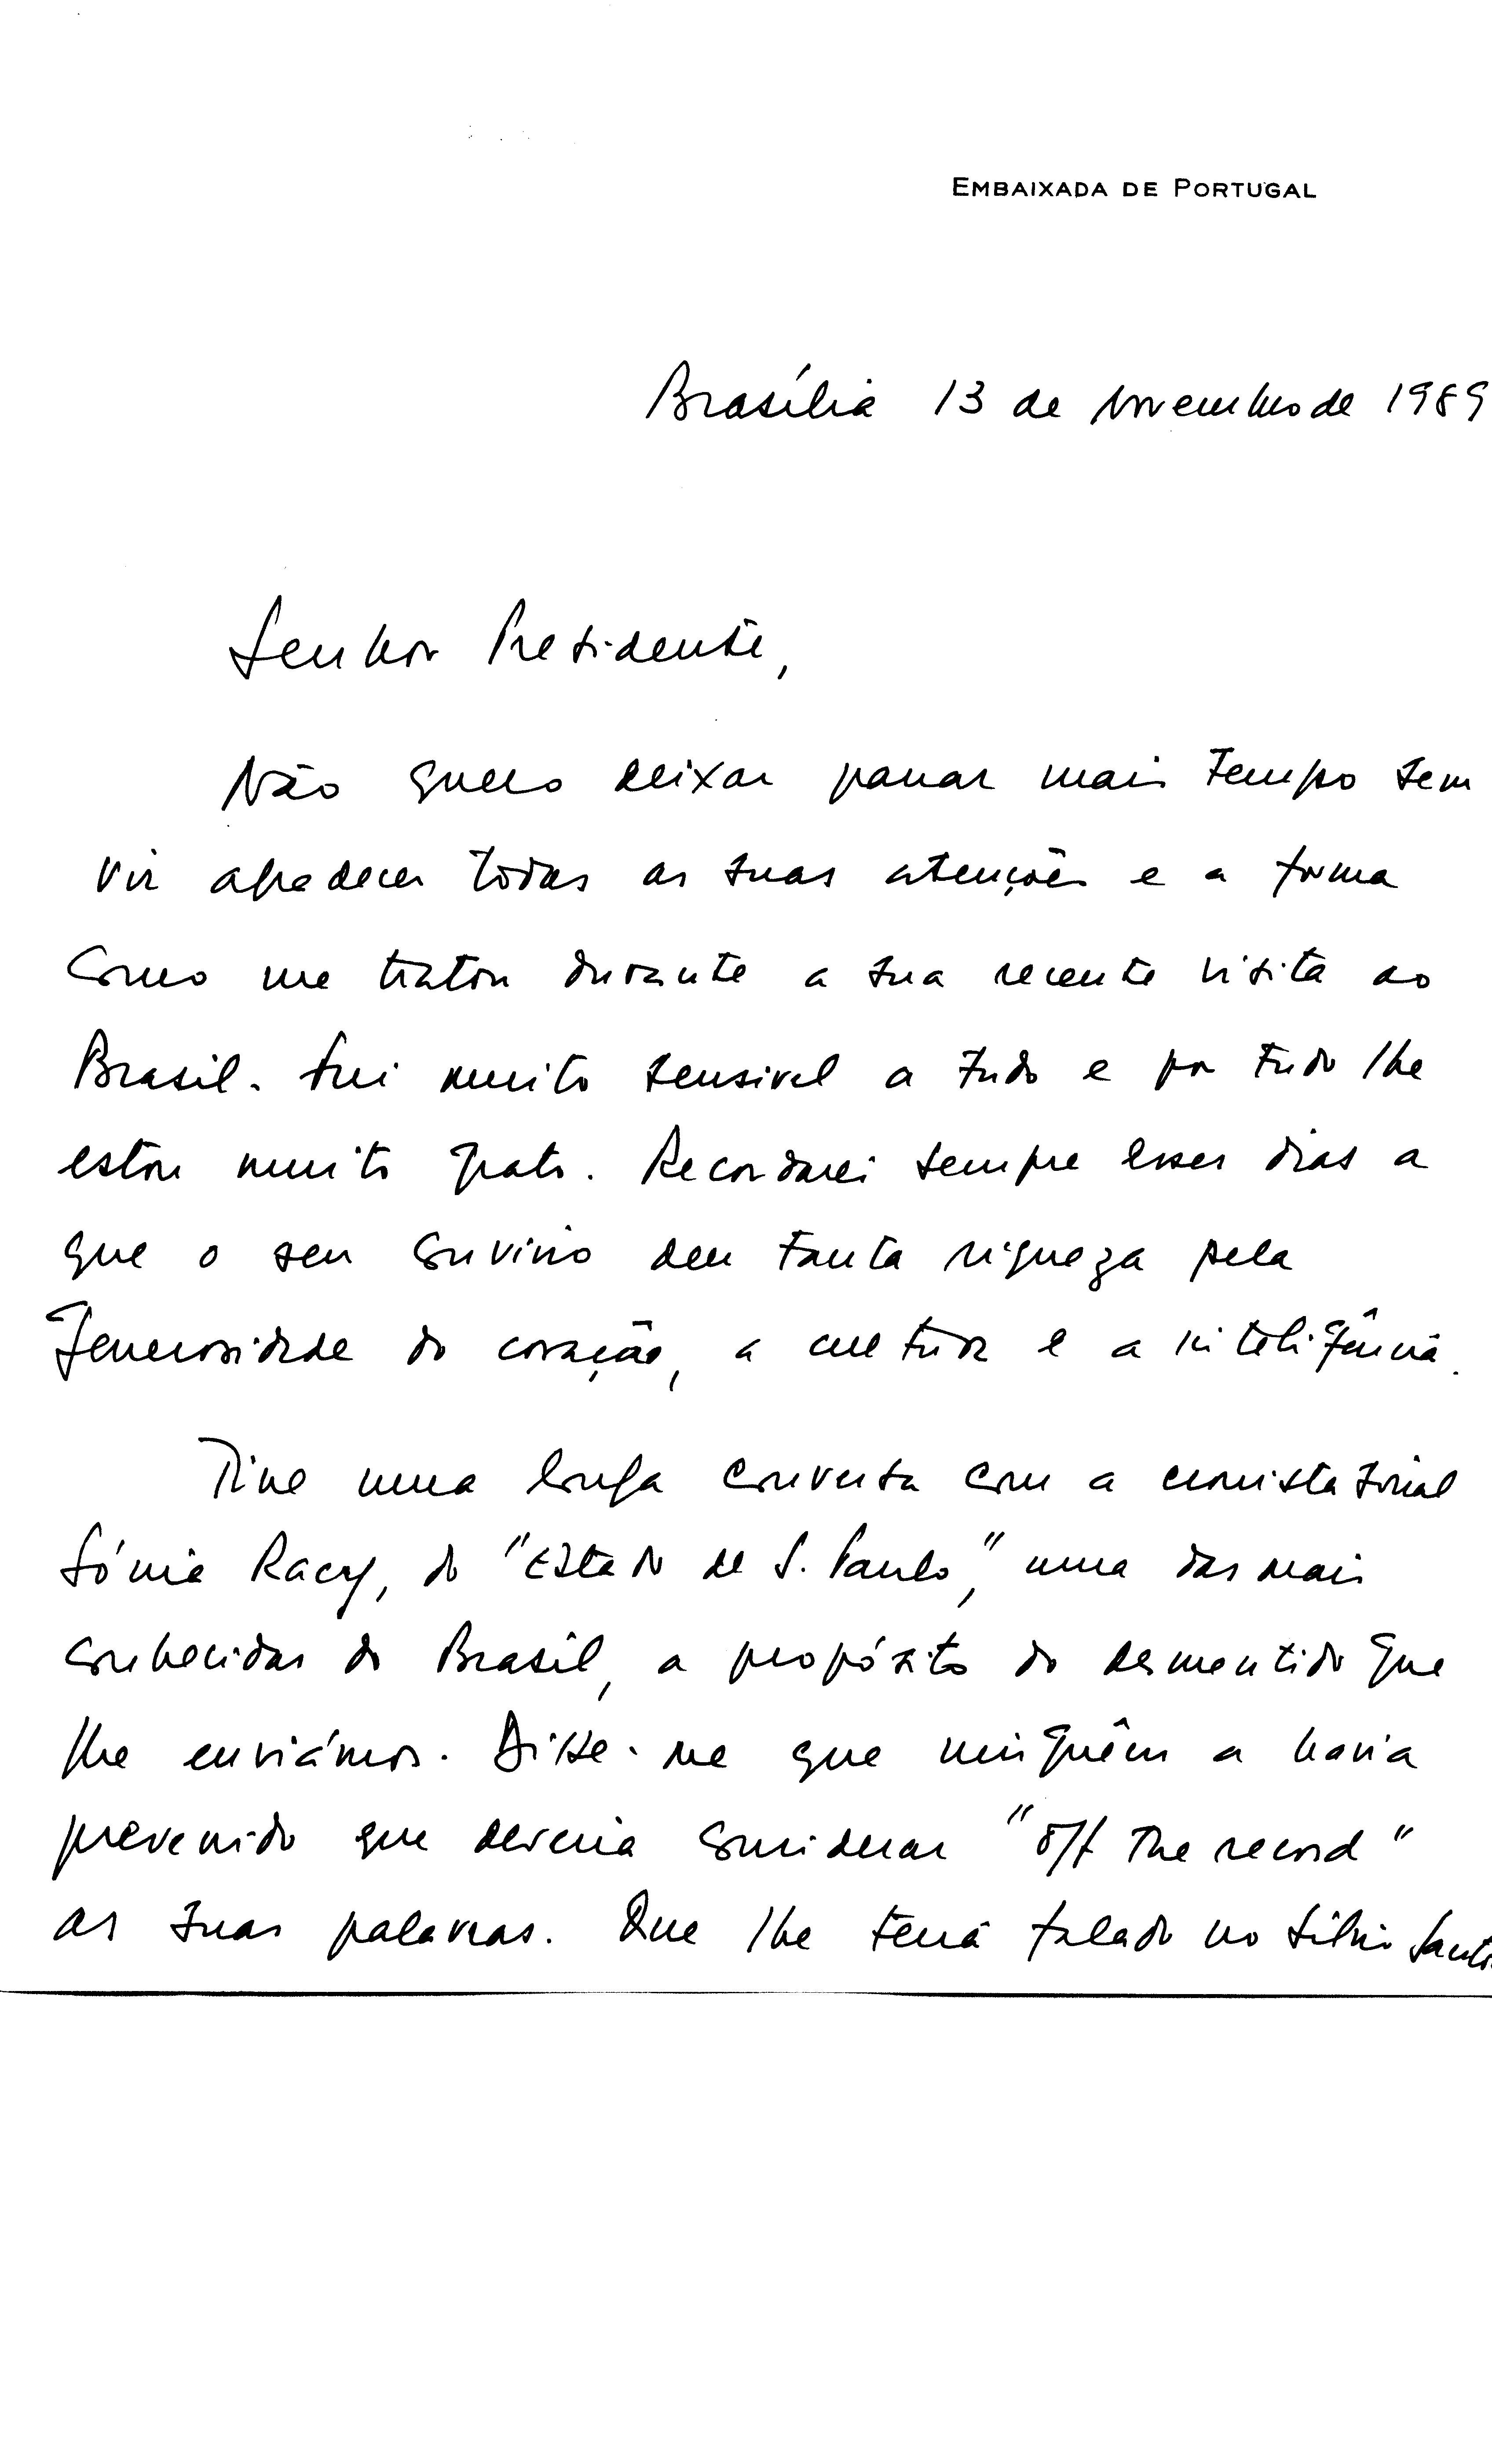 EMBAIXADA DE PORTUGAL
Brasília 13 de Novembro de 1989
Senhor Presidente,
Não quero deixar passar mais tempo sem
vir agradecer todas as suas atenções e a forma
como me tratou durante a sua recente visita ao
Brasil. Fui muito sensivel a tudo e por tudo lhe
estou muito grato. Recordarei sempre esses dias a
que o seu convívio deu tanta riqueza pela
generosidade do coração, a cultura e a inteligência.
Tive uma longa conversa com a cronista social
Sónia Racy, do "Estado de S. Paulo," uma das mais
conhecidas do Brasil, a propósito do desmentido que
lhe enviámos. Disse-me que ninguêm a havia
prevenido que deveria considerar "off the record"
as suas palavras. Que lhe terá falado no Sílvio Santos